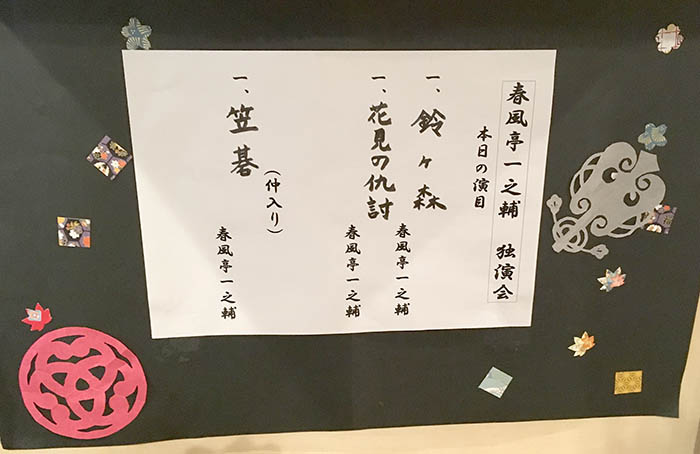 春風亭一之輔 独演会
本日の演目
一、鈴ヶ森 春風亭一之輔
一、花見の仇討 春風亭一之輔
(仲入り)
一、笠碁 春風亭一之輔